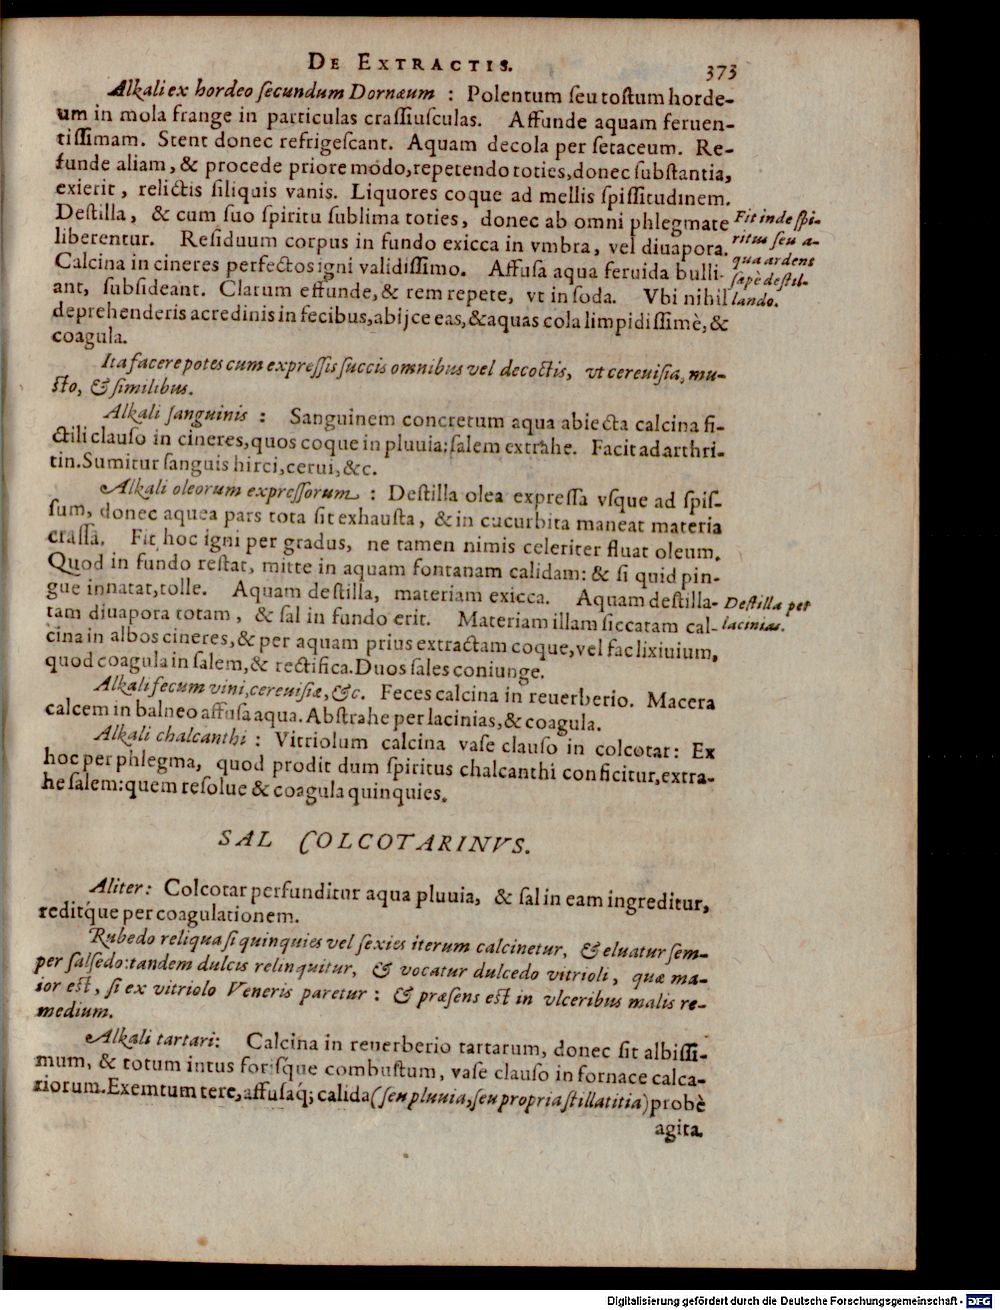 DE EXTRACTIS. 373
Alkali ex hordeo ſecundum Dornæum : Polentum ſeu toſtum horde-
um in mola frange in particulas craſſiuſculas. Affunde aquam feruen-
tiſſimam. Stent donec refrigeſcant. Aquam decola per ſetaceum. Re-
funde aliam, & procede priore modo, repetendo toties, donec ſubſtantia,
exierit, relictis ſiliquis vanis. Liquores coque ad mellis ſpiſſitudinem.
Deſtilla, & cum ſuo ſpiritu ſublima toties, donec ab omni phlegmate
liberentur. Reſiduum corpus in fundo exicca in vmbra, vel diuapora.
Calcina in cineres perfectos igni validiſſimo. Affuſa aqua feruida bulli-
ant, ſubſideant. Clarum effunde, & rem repete, vt in ſoda. Vbi nihil
deprehenderis acredinis in fecibus, abijce eas, & aquas cola limpidiſſimè, &
coagula.
Fit inde ſpi-
ritus ſeu a-
qua ardens
ſæpè deſtil-
lando.
Ita facere potes cum expreſſis ſuccis omnibus vel decoctis, vt cereuiſia, mu-
ſto, & ſimilibus.
Alkali ſanguinis : Sanguinem concretum aqua abiecta calcina fi-
ctili clauſo in cineres, quos coque in pluuia; ſalem extrahe. Facit ad arthri-
tin. Sumitur ſanguis hirci, cerui, &c.
Alkali oleorum expreſſorum : Deſtilla olea expreſſa vſque ad ſpiſ-
ſum, donec aquea pars tota ſit exhauſta, & in cucurbita maneat materia
craſſa. Fit hoc igni per gradus, ne tamen nimis celeriter fluat oleum.
Quod in fundo reſtat, mitte in aquam fontanam calidam: & ſi quid pin-
gue innatat, tolle. Aquam deſtilla, materiam exicca. Aquam deſtilla-
tam diuapora totam, & ſal in fundo erit. Materiam illam ſiccatam cal-
cina in albos cineres, & per aquam prius extractam coque, vel fac lixiuium,
quod coagula in ſalem, & rectifica. Duos ſales coniunge.
Deſtilla per
lacinias.
Alkali fecum vini, cereuiſiæ, &c. Feces calcina in reuerberio. Macera
calcem in balneo affuſa aqua. Abſtrahe per lacinias, & coagula.
Alkali chalcanthi : Vitriolum calcina vaſe clauſo in colcotar: Ex
hoc per phlegma, quod prodit dum ſpiritus chalcanthi conficitur, extra-
he ſalem: quem reſolue & coagula quinquies.
SAL COLCOTARINVS.
Aliter: Colcotar perfunditur aqua pluuia, & ſal in eam ingreditur,
reditq́ue per coagulationem.
Rubedo reliqua ſi quinquies vel ſexies iterum calcinetur, & eluatur ſem-
per ſalſedo: tandem dulcis relinquitur, & vocatur dulcedo vitrioli, quæ ma-
ior eſt, ſi ex vitriolo Veneris paretur : & præſens eſt in vlceribus malis re-
medium.
Alkali tartari: Calcina in reuerberio tartarum, donec ſit albiſſi-
mum, & totum intus forſque combuſtum, vaſe clauſo in fornace calca-
riorum. Exemtum tere, affuſaq́; calida (ſeu pluuia, ſeu propria ſtillatitia) probè
agita.
Digitalisierung gefördert durch die Deutsche Forschungsgemeinschaft - DFG